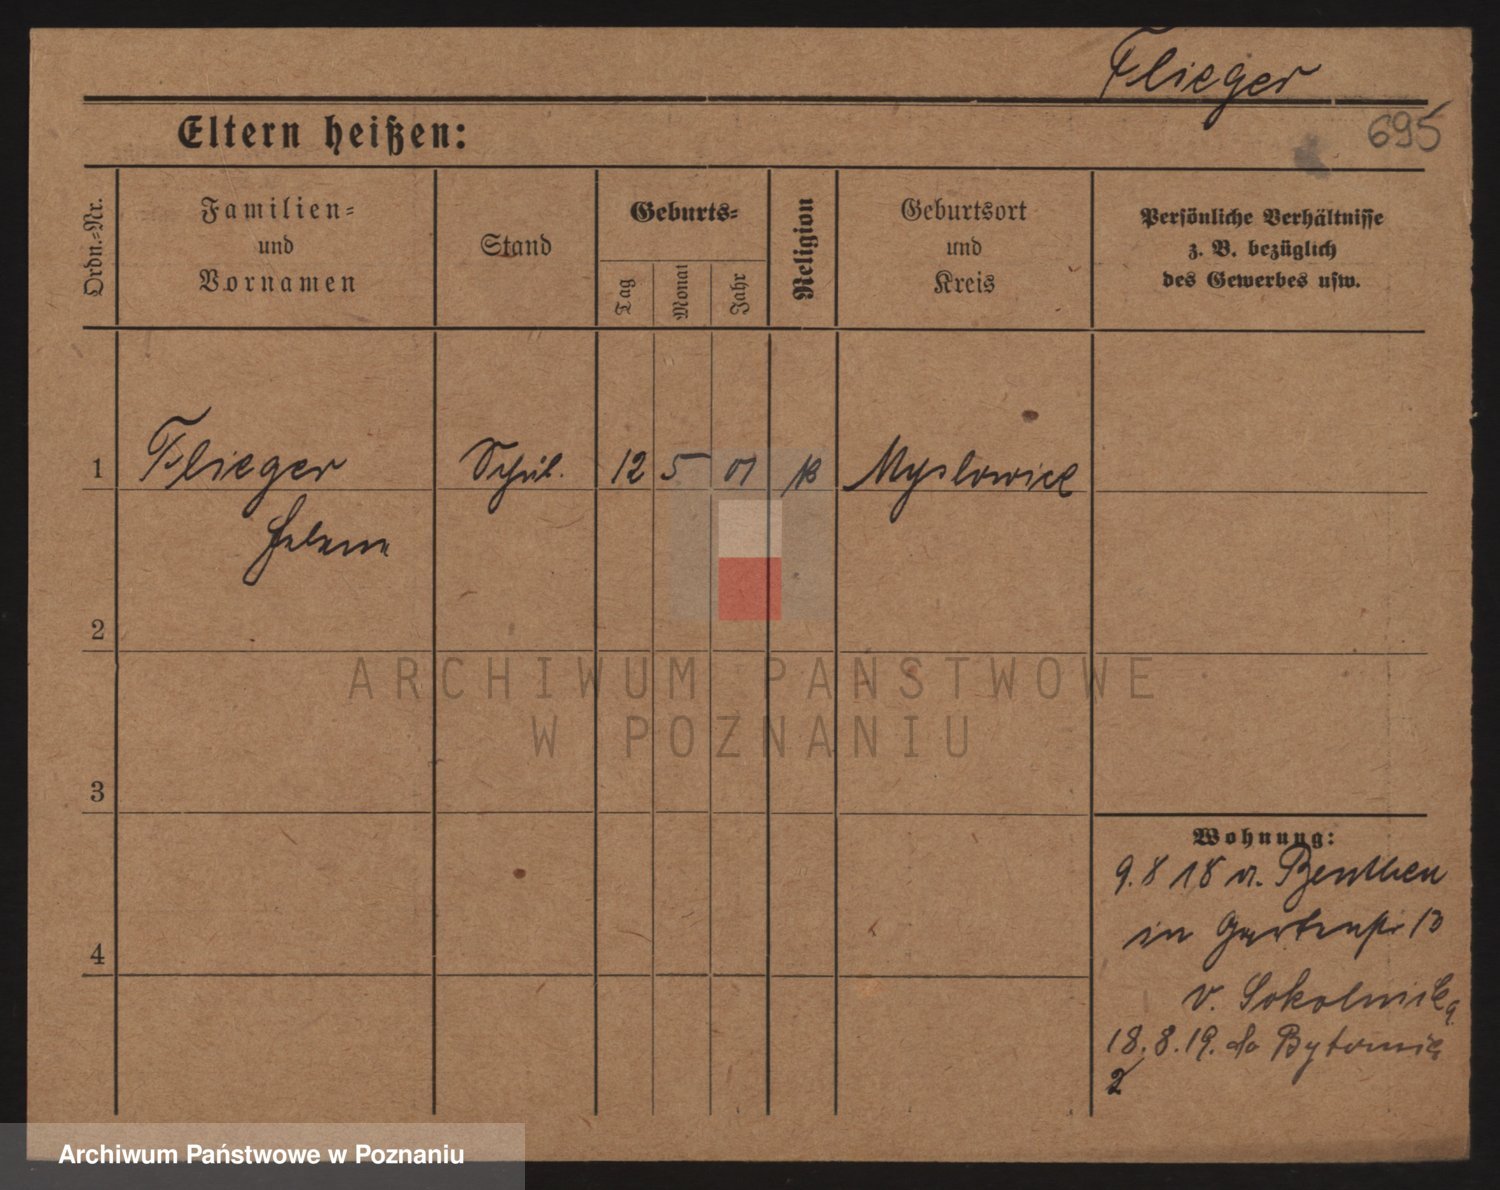 Flieger
695
Eltern heißen:
Ordn.=Nr.
Familien=
und
Vornamen
Stand
Geburts=
Tag
Monat
Jahr
Religion
Geburtsort
und
Kreis
Persönliche Verhältnisse
z. B. bezüglich
des Gewerbes usw.
1 Flieger Schül. 12 5 01 k Myslowice
Helene
2
ARCHIWUM PAŃSTWOWE
W POZNANIU
3
Wohnung:
9.8 18 v. Beuthen
in Gartenstr 13
v. Sokolnick
4
18.8.19. do Bytomia
2
Archiwum Państwowe w Poznaniu